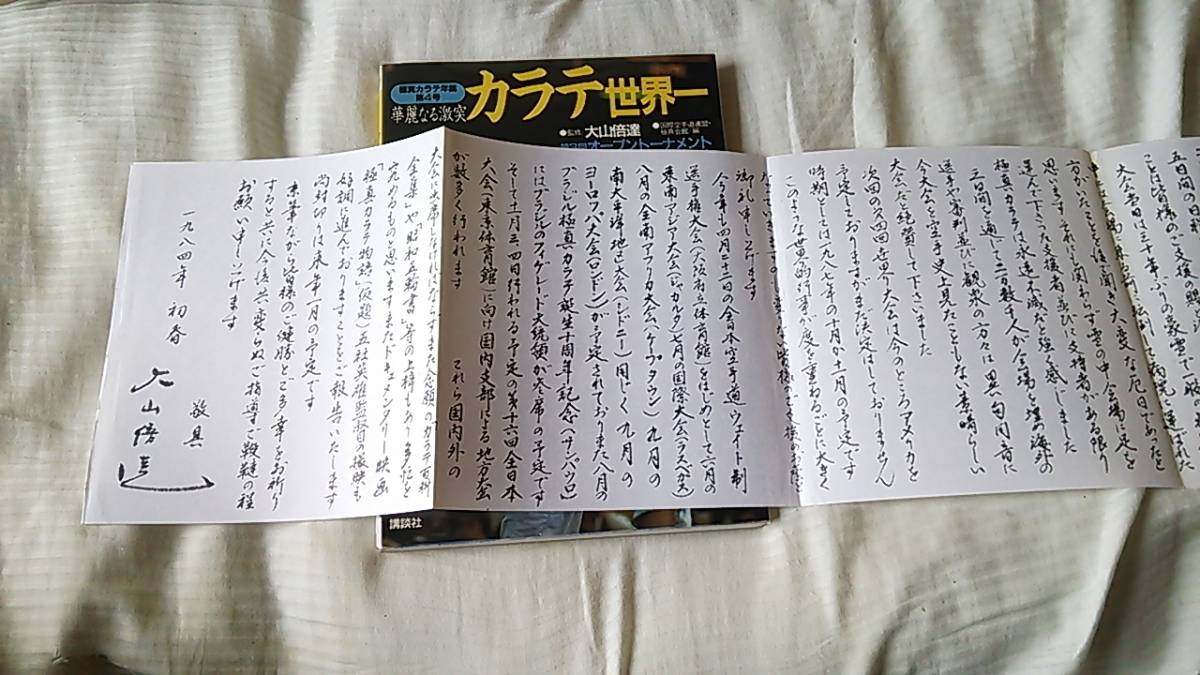 極真カラテ年鑑
第4号
華麗なる激突
カラテ世界一
●監修 大山倍達
●国際空手道連盟・
極真会館/編
オープントーナメント
五日間の日程
ことは皆様のご支援で
大会当日は三十年ぶりの豪雪で
方がいたことを後で聞き大変な厄日であったと
思いますそれにも関わらず雪の中会場に足を
運んで下さった支援者並びに支持者がある限り
極真カラテは永遠に不滅だと強く感じました
三日間を通して二万数千人が会場を埋め海外の
選手や審判並びに観衆の方々は異句同音に
今大会を空手史上見たこともない素晴らしい
大会だと絶賛して下さいました
次回の第四回世界大会は今のところアメリカを
予定しておりますがまだ決定しておりません
時期としては一九八七年の十月か十一月の予定です
このような世界的行事が度を重ねるごとに大きく
御礼申し上げます
今年も四月二十一日の全日本空手道ウェイト制
選手権大会(大阪府立体育館)をはじめとして
東南アジア大会(ジャカルタ)七月の国際大会(ラスベガス)
八月の全南アフリカ大会(ケープタウン)九月の
南太平洋地区大会(シドニー)同じく九月の
ヨーロッパ大会(ロンドン)が予定されておりまた八月の
ブラジル極真カラテ誕生十周年記念祭(サンパウロ)
にはブラジルのフィゲレード大統領が出席の予定です
そして十一月三、四日行われる予定の第十六回全日本
大会(東京体育館)に向け国内支部による地方大会
が数多く行われます
これら国内外の
大会に出席しなければならずまた念願のカラテ百科
全集」や「昭和五輪書」等の上梓もありまさに多忙を
究めるものと思いますまたドキュメンタリー映画
「極真カラテ物語」(仮題)五社英雄監督の撮映も
好調に進んでおりますことをご報告いたします
尚封切りは来年一月の予定です
末筆ながら皆様のご健勝とご多幸をお祈り
すると共に今後共変らぬご指導ご鞭撻の程
お願い申し上げます
敬具
一九八四年 初春
大山倍達
講談社